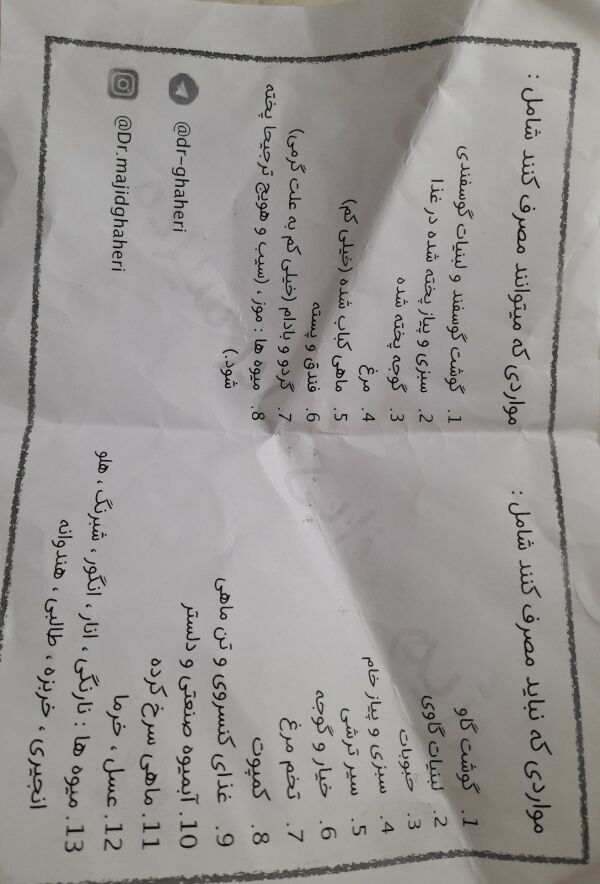 مواردی که میتوانند مصرف کنند شامل :
1. گوشت گوسفند و لبنیات گوسفندی
2. سبزی و پیاز پخته شده در غذا
3. گوجه پخته شده
4. مرغ
5. ماهی کباب شده (خیلی کم)
6. فندق و پسته
7. گردو و بادام (خیلی کم به علت گرمی)
8. میوه ها : موز ، (سیب و هویج ترجیحا پخته
شود.)
@dr-ghaheri
@Dr.majidghaheri
مواردی که نباید مصرف کنند شامل :
1. گوشت گاو
2. لبنیات گاوی
3. حبوبات
4. سبزی و پیاز خام
5. سیر ترشی
6. خیار و گوجه
7. تخم مرغ
8. کمپوت
9. غذای کنسروی و تن ماهی
10. آبمیوه صنعتی و دلستر
11. ماهی سرخ کرده
12. عسل ، خرما
13. میوه ها : نارنگی ، انار ، انگور ، شبرنگ ، هلو
انجیری ، خربزه ، طالبی ، هندوانه